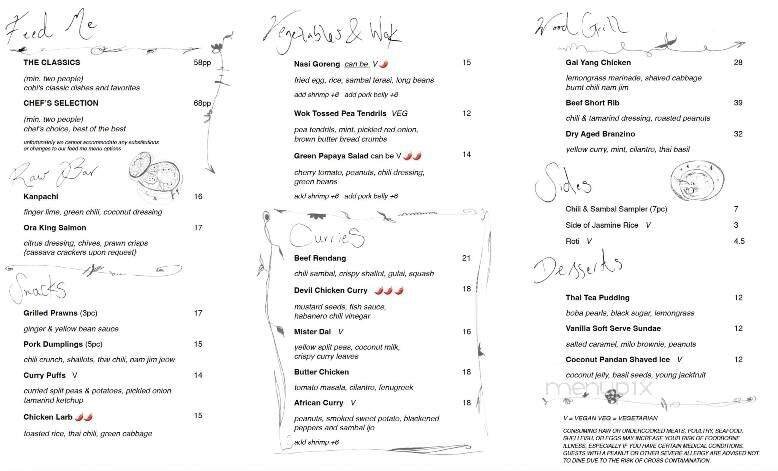 Feed Me
THE CLASSICS 58pp
(min. two people)
cobi's classic dishes and favorites
CHEF'S SELECTION 68pp
(min. two people)
chef's choice, best of the best
unfortunately we cannot accommodate any substitutions
or changes to our feed me menu options
Raw Bar
Kanpachi 16
finger lime, green chili, coconut dressing
Ora King Salmon 17
citrus dressing, chives, prawn crisps
(cassava crackers upon request)
Snacks
Grilled Prawns (3pc) 17
ginger & yellow bean sauce
Pork Dumplings (5pc) 15
chili crunch, shallots, thai chili, nam jim jeow
Curry Puffs V 14
curried split peas & potatoes, pickled onion
tamarind ketchup
Chicken Larb 🌶🌶 15
toasted rice, thai chili, green cabbage
Vegetables & Wok
Nasi Goreng can be V 🌶 15
fried egg, rice, sambal terasi, long beans
add shrimp +6 add pork belly +6
Wok Tossed Pea Tendrils VEG 12
pea tendrils, mint, pickled red onion,
brown butter bread crumbs
Green Papaya Salad can be V 🌶🌶 14
cherry tomato, peanuts, chili dressing,
green beans
add shrimp +6 add pork belly +6
Curries
Beef Rendang 21
chili sambal, crispy shallot, gulai, squash
Devil Chicken Curry 🌶🌶🌶 18
mustard seeds, fish sauce,
habanero chili vinegar
Mister Dal V 16
yellow split peas, coconut milk,
crispy curry leaves
Butter Chicken 18
tomato masala, cilantro, fenugreek
African Curry V 18
peanuts, smoked sweet potato, blackened
peppers and sambal ijo
add shrimp +6
Wood Grill
Gai Yang Chicken 28
lemongrass marinade, shaved cabbage
burnt chili nam jim
Beef Short Rib 39
chili & tamarind dressing, roasted peanuts
Dry Aged Branzino 32
yellow curry, mint, cilantro, thai basil
Sides
Chili & Sambal Sampler (7pc) 7
Side of Jasmine Rice V 3
Roti V 4.5
Desserts
Thai Tea Pudding 12
boba pearls, black sugar, lemongrass
Vanilla Soft Serve Sundae 12
salted caramel, milo brownie, peanuts
Coconut Pandan Shaved Ice V 12
coconut jelly, basil seeds, young jackfruit
menupix
V = VEGAN VEG = VEGETARIAN
CONSUMING RAW OR UNDERCOOKED MEATS, POULTRY, SEAFOOD,
SHELLFISH, OR EGGS MAY INCREASE YOUR RISK OF FOODBORNE
ILLNESS, ESPECIALLY IF YOU HAVE CERTAIN MEDICAL CONDITIONS.
GUESTS WITH A PEANUT OR OTHER SEVERE ALLERGY ARE ADVISED NOT
TO DINE DUE TO THE RISK OF CROSS CONTAMINATION.